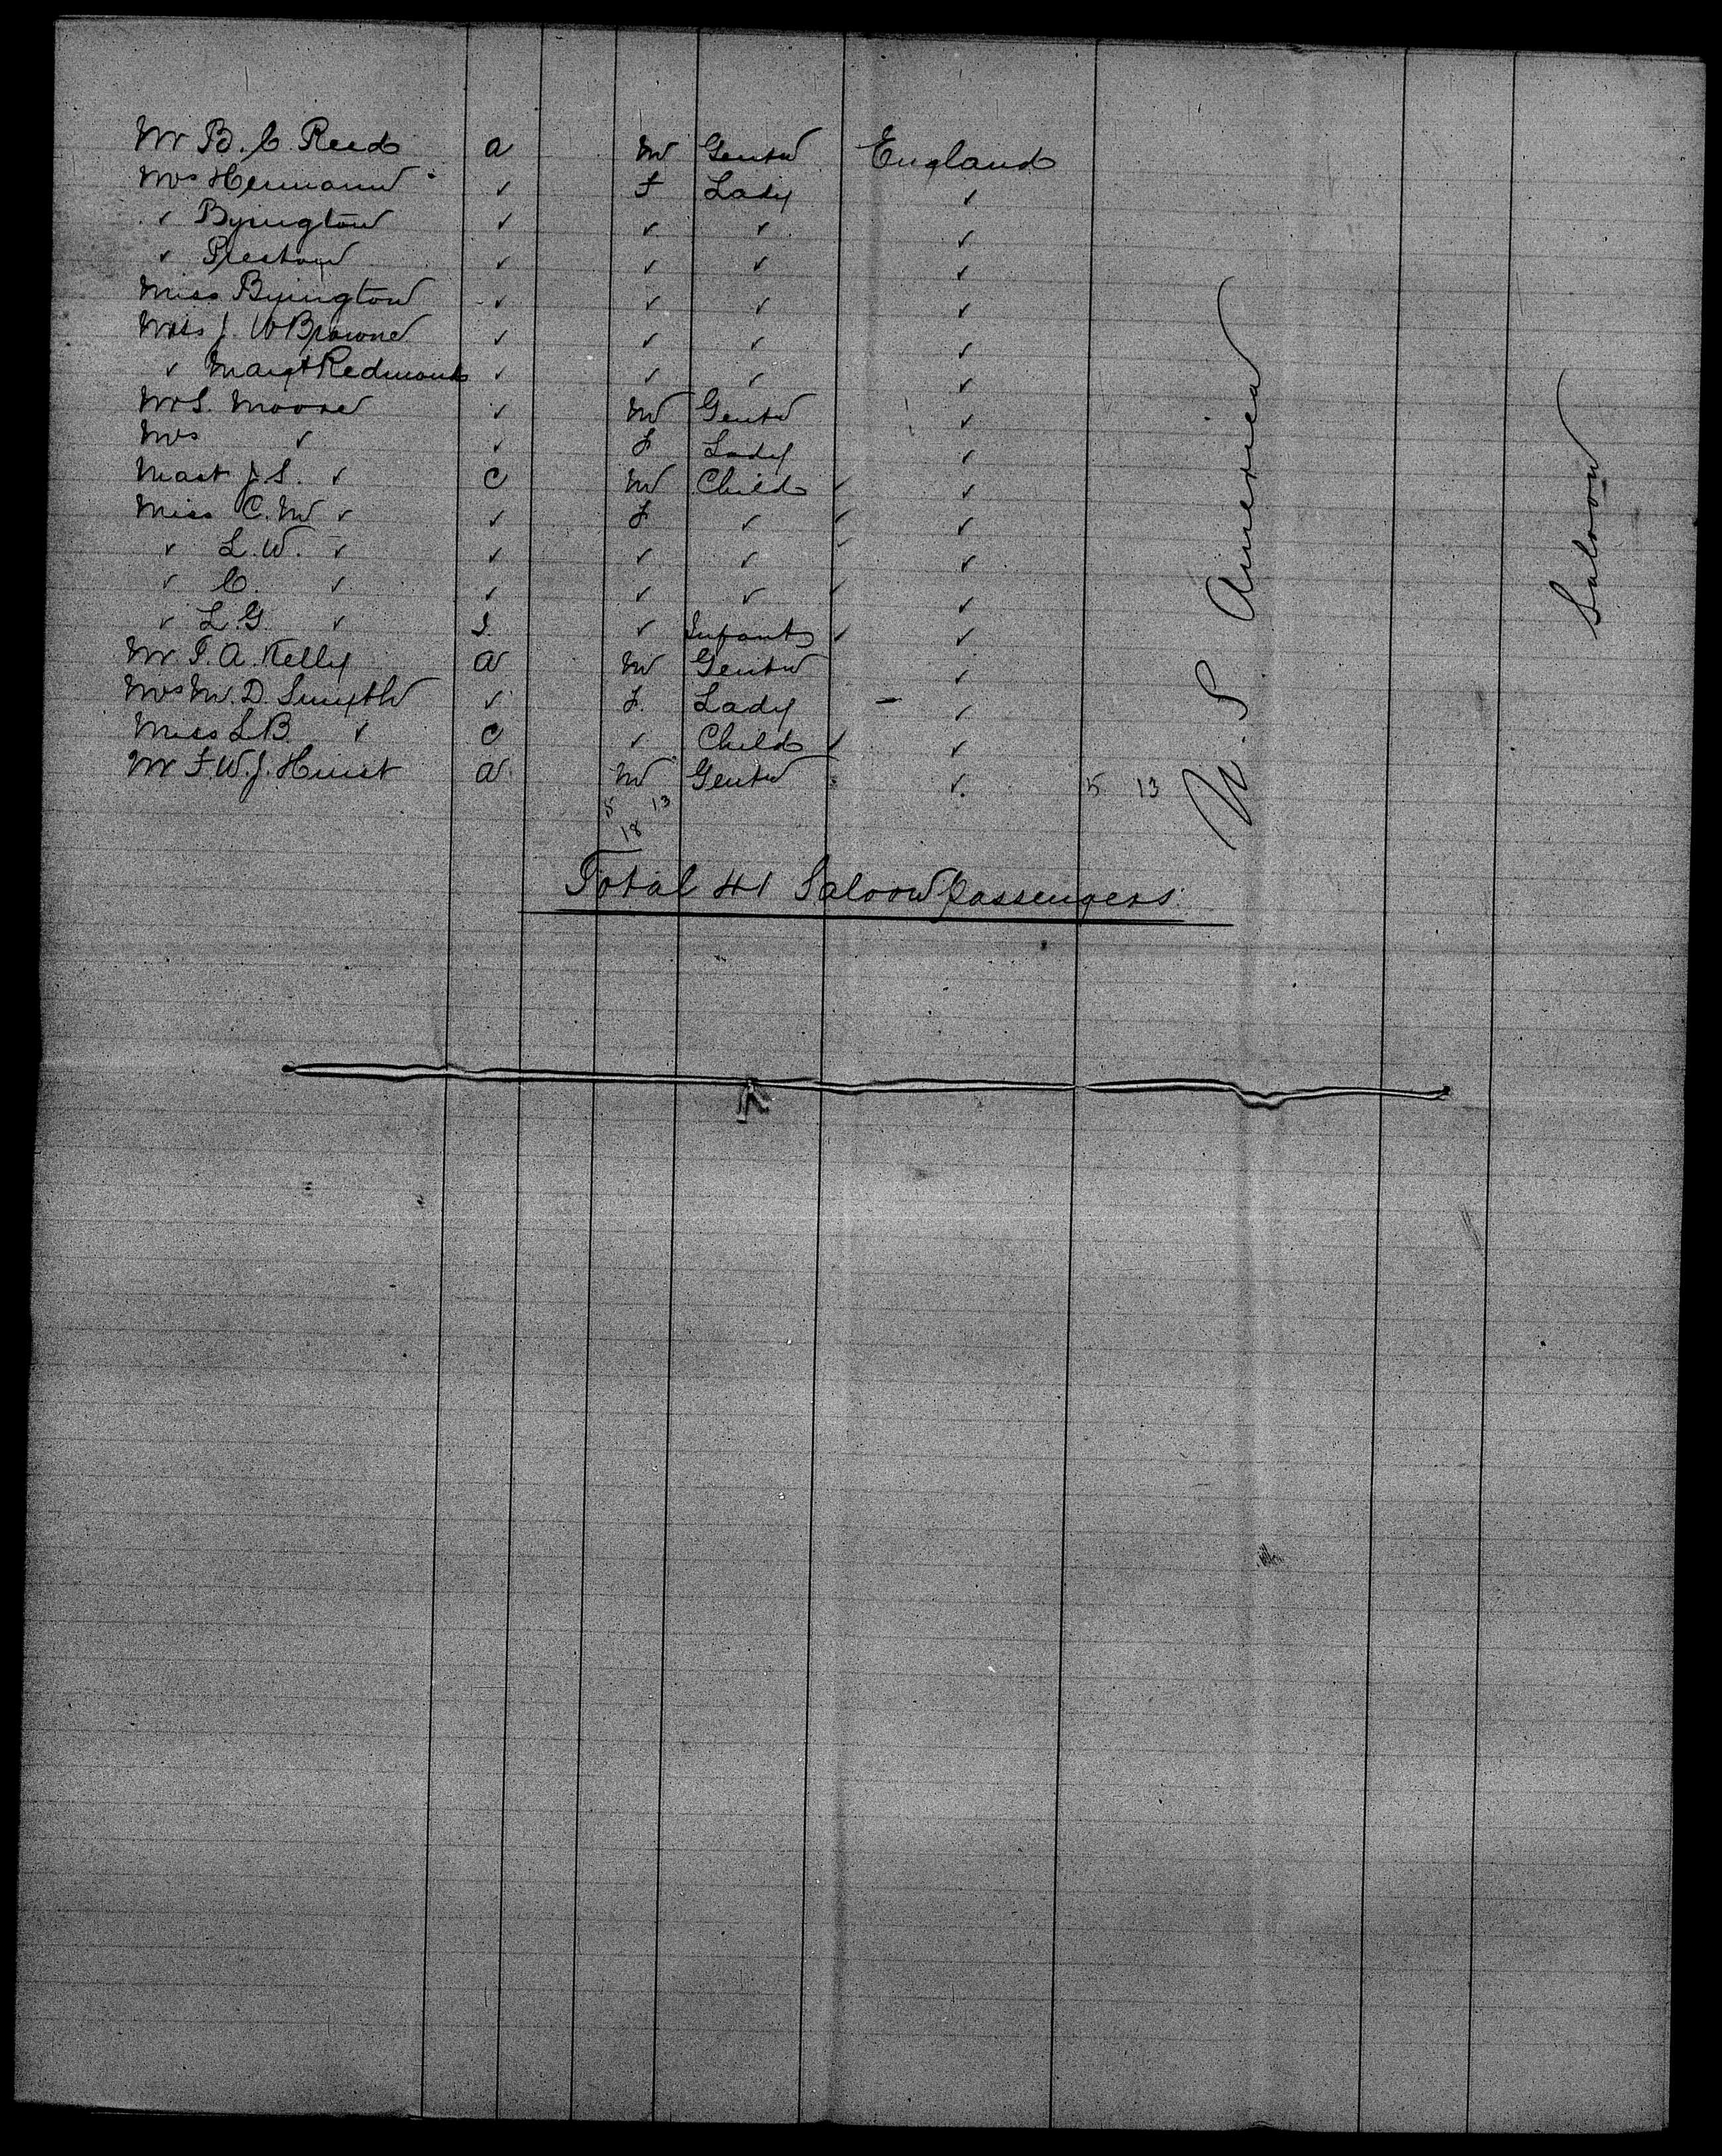 Mr B. C. Reed a M Gentn England
Mrs Hermann ✓ F Lady ✓
✓ Byington ✓ ✓ ✓ ✓
✓ Preston ✓ ✓ ✓ ✓
Miss Byington ✓ ✓ ✓ ✓
Mrs J. W Browne ✓ ✓ ✓ ✓
✓ Margt Redmond ✓ ✓ ✓ ✓
Mr S. Moore ✓ M Gentn ✓
Mrs ✓ ✓ F Lady ✓
Mast J. S. ✓ C M Child ✓ ✓
Miss C. M ✓ ✓ F ✓ ✓ ✓
✓ L. W. ✓ ✓ ✓ ✓ ✓ ✓
✓ C. ✓ ✓ ✓ ✓ ✓ ✓
✓ L. G. ✓ I. ✓ Infant ✓ ✓
Mr T. A. Kelly a M Gentn ✓
Mrs M. D. Smyth ✓ F. Lady – ✓
Miss L B. ✓ C ✓ Child ✓ ✓
Mr F W. J. Hurst a M Gentn ✓. 5 13
5 13
18
U. S. America
Saloon
Total 41 Saloon passengers.